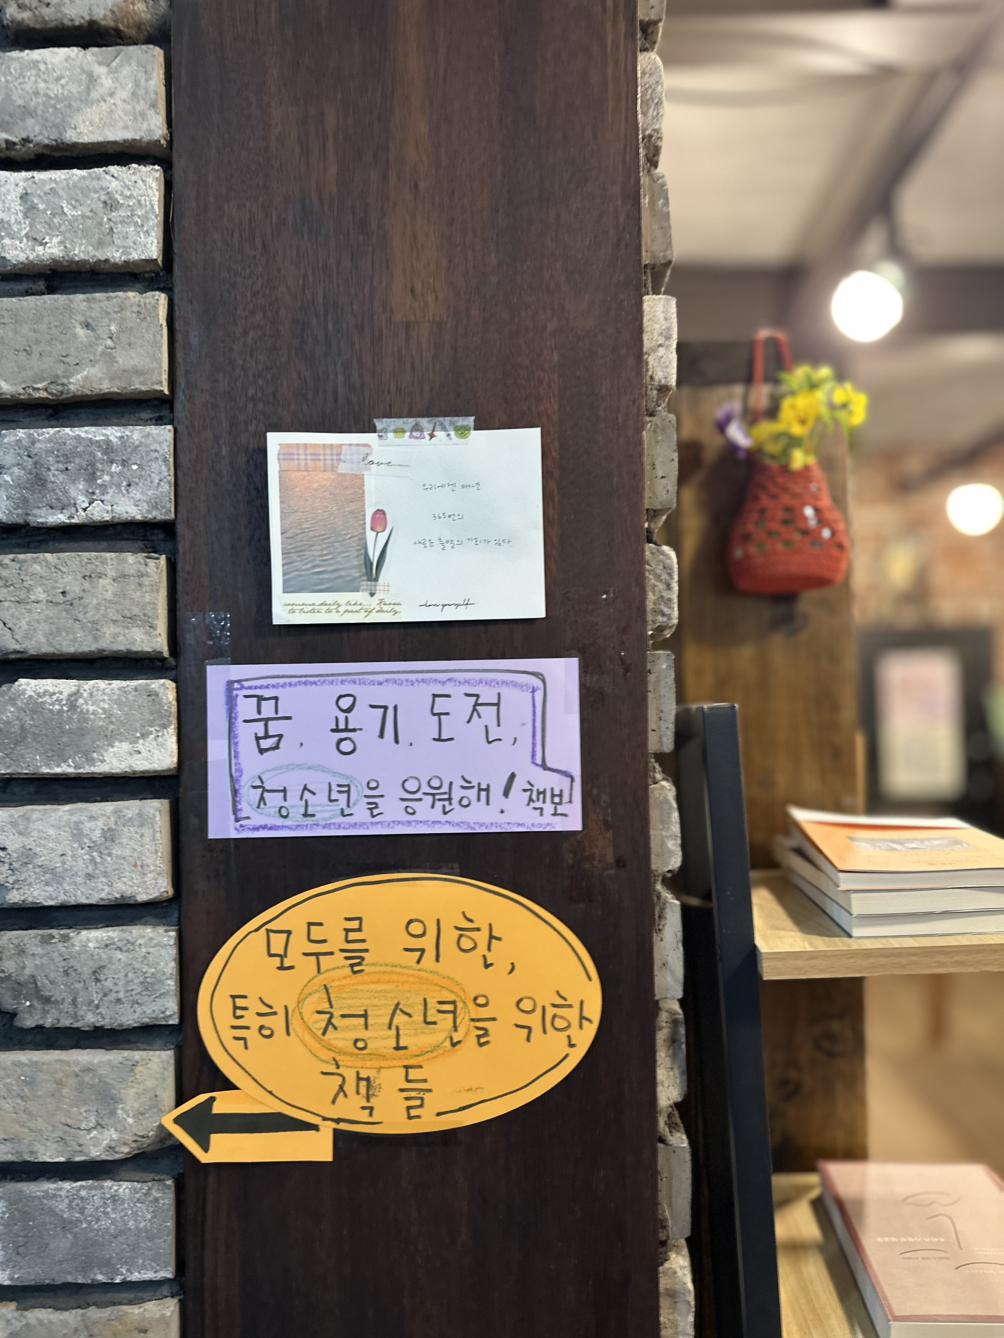 love
우리에겐 매년
365번의
새로운 출발의 기회가 있다
to listen to a part of daily.
love yourself
꿈, 용기, 도전,
청소년을 응원해! 책보
모두를 위한,
특히 청소년을 위한
책들